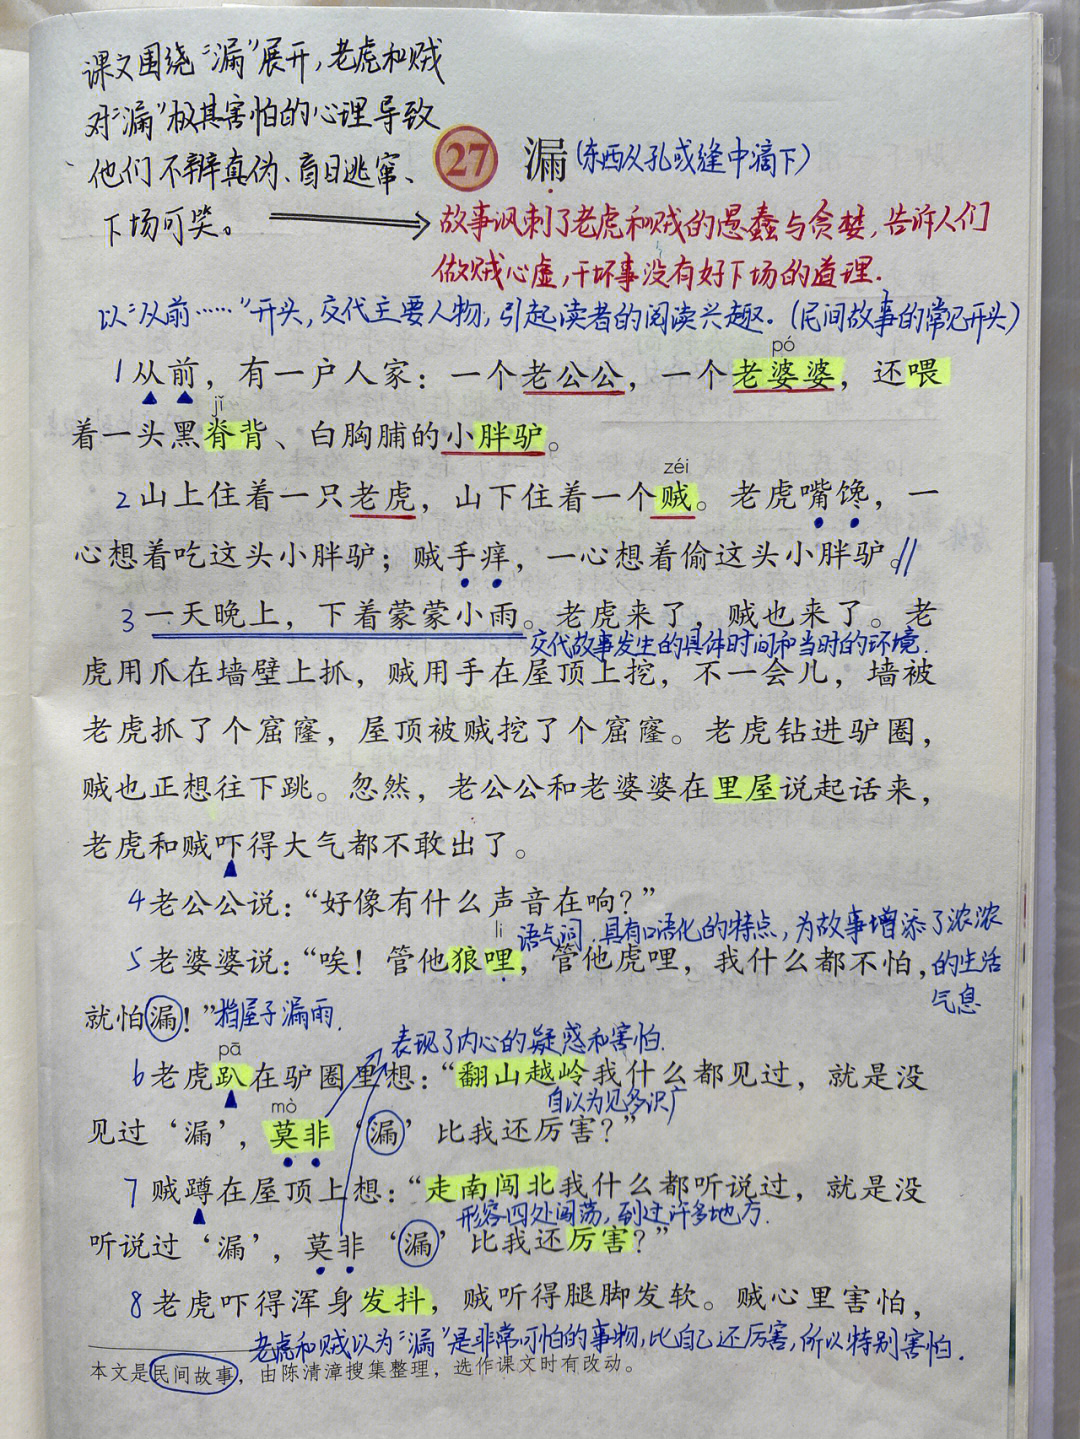 课文围绕“漏”展开，老虎和贼
对“漏”极其害怕的心理导致
他们不辨真伪、盲目逃窜、
下场可笑。
27 漏(东西从孔或缝中滴下)
故事讽刺了老虎和贼的愚蠢与贪婪，告诉人们
做贼心虚，干坏事没有好下场的道理.
以“从前……”开头，交代主要人物，引起读者的阅读兴趣.(民间故事的常见开头)
pó
1从前，有一户人家：一个老公公，一个老婆婆，还喂
jǐ
着一头黑脊背、白胸脯的小胖驴。
zéi
2山上住着一只老虎，山下住着一个贼。老虎嘴馋，一
心想着吃这头小胖驴；贼手痒，一心想着偷这头小胖驴。//
3一天晚上，下着蒙蒙小雨。老虎来了，贼也来了。老
交代故事发生的具体时间和当时的环境.
虎用爪在墙壁上抓，贼用手在屋顶上挖，不一会儿，墙被
老虎抓了个窟窿，屋顶被贼挖了个窟窿。老虎钻进驴圈，
贼也正想往下跳。忽然，老公公和老婆婆在里屋说起话来，
老虎和贼吓得大气都不敢出了。
4老公公说：“好像有什么声音在响？”
li 语气词.具有口语化的特点，为故事增添了浓浓
5老婆婆说：“唉！管他狼哩，管他虎哩，我什么都不怕，的生活
气息
就怕漏！”指屋子漏雨.
表现了内心的疑惑和害怕.
pā
6老虎趴在驴圈里想：“翻山越岭我什么都见过，就是没
自以为见多识广
mò
见过‘漏’，莫非‘漏’比我还厉害？”
7贼蹲在屋顶上想：“走南闯北我什么都听说过，就是没
形容四处闯荡，到过许多地方.
听说过‘漏’，莫非‘漏’比我还厉害？”
8老虎吓得浑身发抖，贼听得腿脚发软。贼心里害怕，
老虎和贼以为“漏”是非常可怕的事物，比自己还厉害，所以特别害怕.
本文是民间故事，由陈清漳搜集整理，选作课文时有改动。